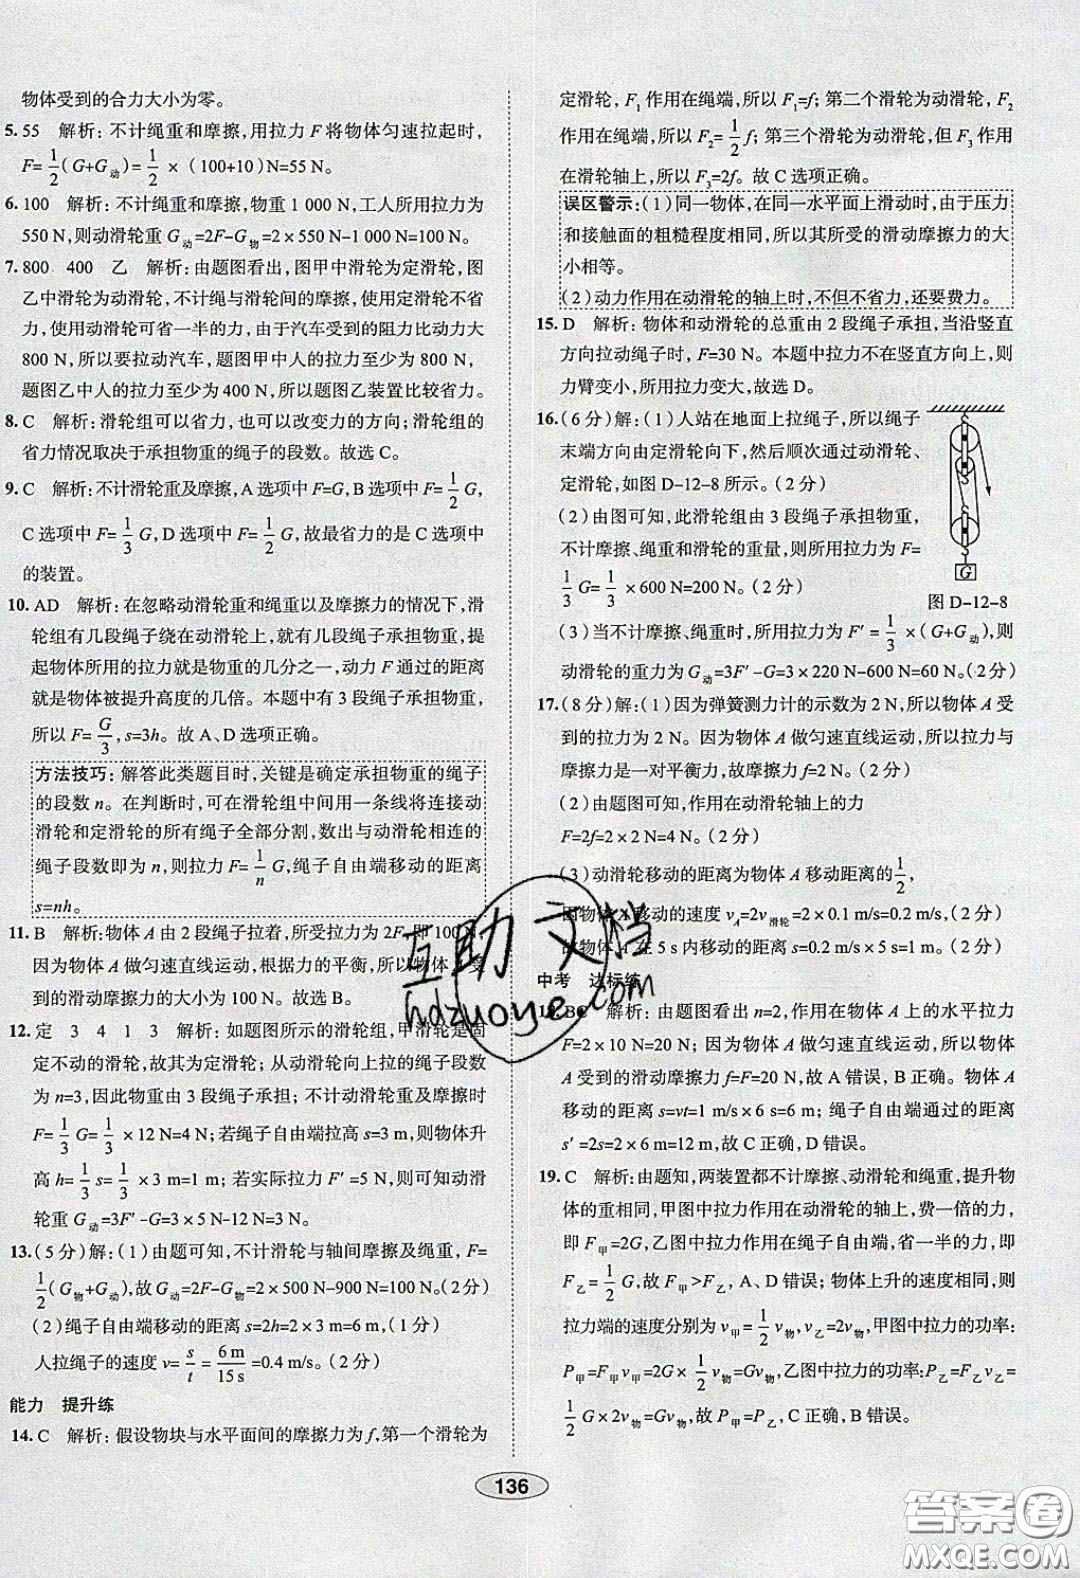 物体受到的合力大小为零。
5. 55　解析：不计绳重和摩擦，用拉力 F 将物体匀速拉起时，
F=1/2(G+G动)=1/2×(100+10)N=55 N。
6. 100　解析：不计绳重和摩擦，物重 1 000 N，工人所用拉力为
550 N，则动滑轮重 G动=2F-G物=2×550 N-1 000 N=100 N。
7. 800　400　乙　解析：由题图看出，图甲中滑轮为定滑轮，图
乙中滑轮为动滑轮，不计绳与滑轮间的摩擦，使用定滑轮不省
力，使用动滑轮可省一半的力，由于汽车受到的阻力比动力大
800 N，所以要拉动汽车，题图甲中人的拉力至少为 800 N，
题图乙中人的拉力至少为 400 N，所以题图乙装置比较省力。
8. C　解析：滑轮组可以省力，也可以改变力的方向；滑轮组的
省力情况取决于承担物重的绳子的段数。故选 C。
9. C　解析：不计滑轮重及摩擦，A 选项中 F=G，B 选项中 F=1/2 G，
C 选项中 F=1/3 G，D 选项中 F=1/2 G，故最省力的是 C 选项中
的装置。
10. AD　解析：在忽略动滑轮重和绳重以及摩擦力的情况下，滑
轮组有几段绳子绕在动滑轮上，就有几段绳子承担物重，提
起物体所用的拉力就是物重的几分之一，动力 F 通过的距离
就是物体被提升高度的几倍。本题中有 3 段绳子承担物重，
所以 F=G/3，s=3h。故 A、D 选项正确。
方法技巧：解答此类题目时，关键是确定承担物重的绳子
的段数 n。在判断时，可在滑轮组中间用一条线将连接动
滑轮和定滑轮的所有绳子全部分割，数出与动滑轮相连的
绳子段数即为 n，则拉力 F=1/n G，绳子自由端移动的距离
s=nh。
11. B　解析：物体 A 由 2 段绳子拉着，所受拉力为 2F，即 100 N，
因为物体 A 做匀速直线运动，根据力的平衡，所以物体 A 受
到的滑动摩擦力的大小为 100 N。故选 B。
12. 定　3　4　1　3　解析：如题图所示的滑轮组，甲滑轮是固
定不动的滑轮，故其为定滑轮；从动滑轮向上拉的绳子段数
为 n=3，因此物重由 3 段绳子承担；不计动滑轮重和摩擦时
F=1/3 G=1/3×12 N=4 N；若绳子自由端拉高 s=3 m，则物体升
高 h=1/3 s=1/3×3 m=1 m；若实际拉力 F′=5 N，则动滑
轮重 G动=3F′-G=3×5 N-12 N=3 N。
13. (5 分)解：(1)由题可知，不计滑轮与轴间摩擦及绳重，F=
1/2(G物+G动)，故 G动=2F-G物=2×500 N-900 N=100 N。(2 分)
(2)绳子自由端移动的距离 s=2h=2×3 m=6 m，(1 分)
人拉绳子的速度 v=s/t=6 m/15 s=0.4 m/s。(2 分)
能力　提升练
14. C　解析：假设物块与水平面间的摩擦力为 f，第一个滑轮为
定滑轮，F1 作用在绳端，所以 F1=f；第二个滑轮为动滑轮，F2
作用在绳端，所以 F2=1/2 f；第三个滑轮为动滑轮，但 F3 作用
在滑轮轴上，所以 F3=2f。故 C 选项正确。
误区警示：(1)同一物体，在同一水平面上滑动时，由于压力
和接触面的粗糙程度相同，所以其所受的滑动摩擦力的大
小相等。
(2)动力作用在动滑轮的轴上时，不但不省力，还要费力。
15. D　解析：物体和动滑轮的总重由 2 段绳子承担，当沿竖直
方向拉动绳子时，F=30 N。本题中拉力不在竖直方向上，所以
力臂变小，所用拉力变大，故选 D。
16. (6 分)解：(1)人站在地面上拉绳子，所以绳子
末端方向由定滑轮向下，然后顺次通过动滑轮、
定滑轮，如图 D-12-8 所示。(2 分)
(2)由图可知，此滑轮组由 3 段绳子承担物重，
不计摩擦、绳重和滑轮的重量，则所用拉力为 F=
1/3 G=1/3×600 N=200 N。(2 分)
G
图 D-12-8
(3)当不计摩擦、绳重时，所用拉力为 F′=1/3×(G+G动)，则
动滑轮的重力为 G动=3F′-G=3×220 N-600 N=60 N。(2 分)
17. (8 分)解：(1)因为弹簧测力计的示数为 2 N，所以物体 A 受
到的拉力为 2 N。因为物体 A 做匀速直线运动，所以拉力与
摩擦力是一对平衡力，故摩擦力 f=2 N。(2 分)
(2)由题图可知，作用在动滑轮轴上的力
F=2f=2×2 N=4 N。(2 分)
(3)动滑轮移动的距离为物体 A 移动距离的1/2，
因物体 A 移动的速度 vA=2v滑轮=2×0.1 m/s=0.2 m/s，(2 分)
故物体 A 在 5 s 内移动的距离 s=0.2 m/s×5 s=1 m。(2 分)
中考　达标练
18. BC　解析：由题图看出 n=2，作用在物体 A 上的水平拉力
F=2×10 N=20 N；因为物体 A 做匀速直线运动，所以物体
A 受到的滑动摩擦力 f=F=20 N，故 A 错误，B 正确。物体 A
移动的距离 s=vt=1 m/s×6 s=6 m；绳子自由端通过的距离
s′=2s=2×6 m=12 m，故 C 正确，D 错误。
19. C　解析：由题知，两装置都不计摩擦、动滑轮和绳重，提升物
体的重力相等，甲图中拉力作用在动滑轮的轴上，费一倍的力，
即 F甲=2G，乙图中拉力作用在绳子自由端，省一半的力，即
F乙=1/2 G，故 F甲>F乙，A、D 错误；物体上升的速度相同，则
拉力端的速度分别为 v甲=1/2 v物，v乙=2v物，甲图中拉力的功率：
P甲=F甲v甲=2G×1/2 v物=Gv物，乙图中拉力的功率：P乙=F乙v乙=
1/2 G×2v物=Gv物，故 P甲=P乙，C 正确，B 错误。
136
互助文档
hdzuoye.com
答案圈
MXQE.COM